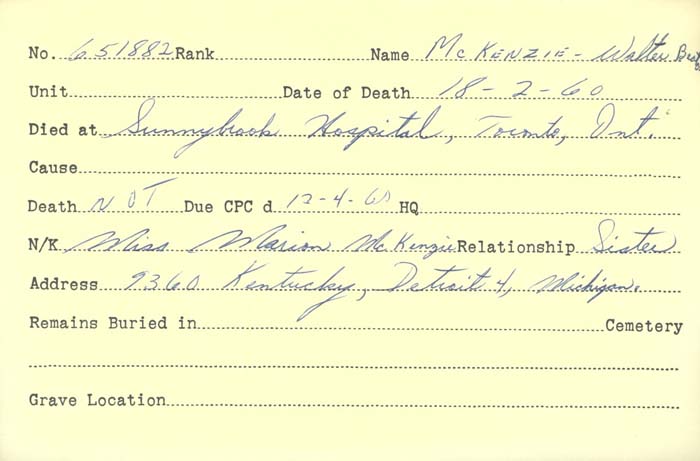 No. 651882 Rank Name McKENZIE - Walter
Unit Date of Death 18-2-60
Died at Sunnybrook Hospital, Toronto, Ont.
Cause
Death NOT Due CPC d 12-4-60 HQ
N/K Miss Marion McKenzie Relationship Sister
Address 9360 Kentucky, Detroit 4, Michigan.
Remains Buried in Cemetery
Grave Location